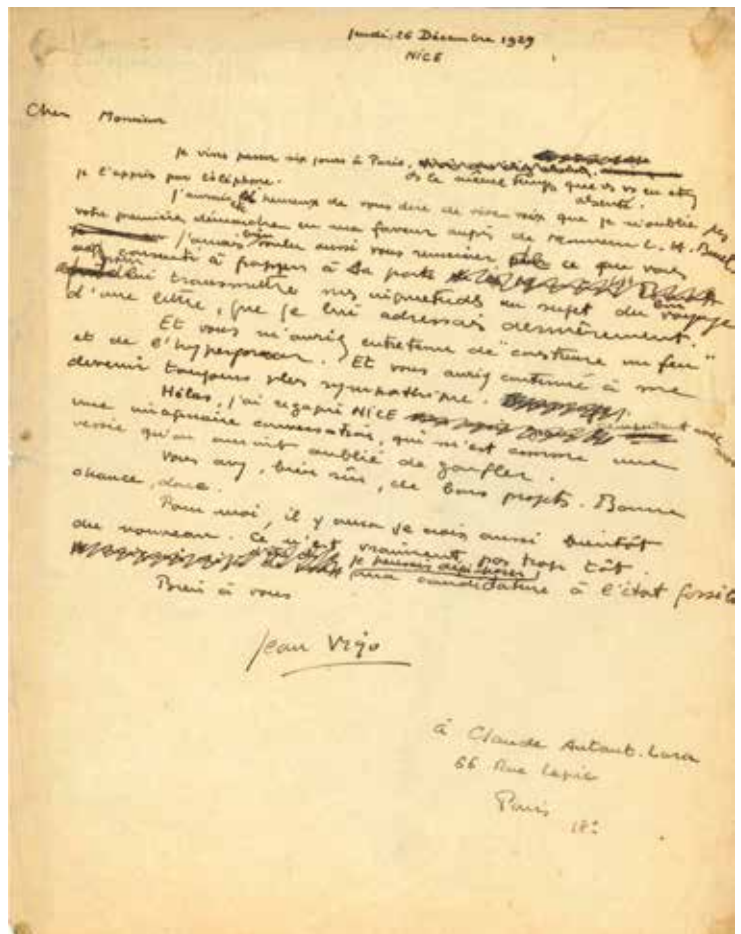 Jeudi, 26 Décembre 1929
NICE
Cher Monsieur
Je viens passer six jours à Paris,
ds le même temps que vs vs en étiez
je l'appris par téléphone. absenté.
J'aurais été heureux de vous dire de vive voix que je n'oublie pas
votre première démarche en ma faveur auprès de Monsieur
J'aurais voulu aussi vous remercier de ce que vous
consenti à frapper à sa porte
lui transmettre mes inquiétudes au sujet du bon voyage
d'une lettre, que je lui adressais dernièrement.
Et vous m'auriez entretenu de "construire un feu"
et de l'hypergonar. Et vous auriez continué à me
devenir toujours plus sympathique.
Hélas, j'ai regagné NICE
une imaginaire conversation, qui m'est comme une
vessie qu'on aurait oublié de gonfler.
Vous avez, bien sûr, de bons projets. Bonne
chance, donc.
Pour moi, il y aura je crois aussi bientôt
du nouveau. Ce n'est vraiment pas trop tôt.
je pensais déjà
ma candidature à l'état fossile
Bien à vous
Jean Vigo
à Claude Autant-Lara
66 Rue Lepic
Paris
18e